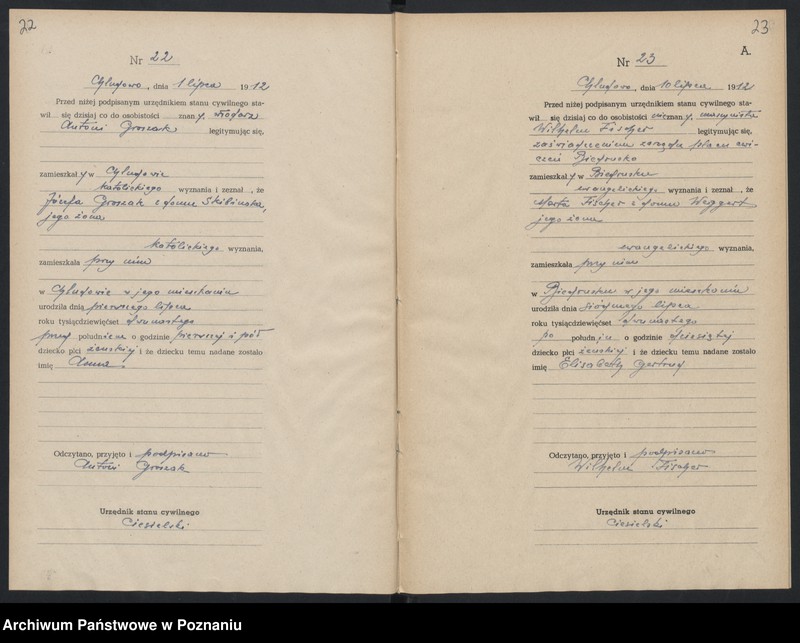 22
Nr 22
Chludowo, dnia 1 lipca 1912
Przed niżej podpisanym urzędnikiem stanu cywilnego sta-
wił się dzisiaj co do osobistości znany, włodarz
Antoni Groszak legitymując się,
zamieszkały w Chludowie
katolickiego wyznania i zeznał, że
Józefa Groszak z domu Skibińska,
jego żona
katolickiego wyznania,
zamieszkała przy nim
w Chludowie w jego mieszkaniu
urodziła dnia pierwszego lipca
roku tysiącdziewięćset dwunastego
przed południem o godzinie pierwszej i pół
dziecko płci żeńskiej i że dziecku temu nadane zostało
imię Anna.
Odczytano, przyjęto i podpisano
Antoni Groszak
Urzędnik stanu cywilnego
Ciesielski
23
A.
Nr 23
Chludowo, dnia 10 lipca 1912
Przed niżej podpisanym urzędnikiem stanu cywilnego sta-
wił się dzisiaj co do osobistości nieznany, maszynista
Wilhelm Fischer legitymując się,
zaświadczeniem zarządu placu ćwi-
czeń Biedrusko
zamieszkały w Biedrusku
ewangelickiego wyznania i zeznał, że
Marta Fischer z domu Weggert
jego żona
ewangelickiego wyznania,
zamieszkała przy nim
w Biedrusku w jego mieszkaniu
urodziła dnia siódmego lipca
roku tysiącdziewięćset dwunastego
po południu o godzinie dziesiątej
dziecko płci żeńskiej i że dziecku temu nadane zostało
imię Elisabeth Gertrud
Odczytano, przyjęto i podpisano
Wilhelm Fischer
Urzędnik stanu cywilnego
Ciesielski
Archiwum Państwowe w Poznaniu